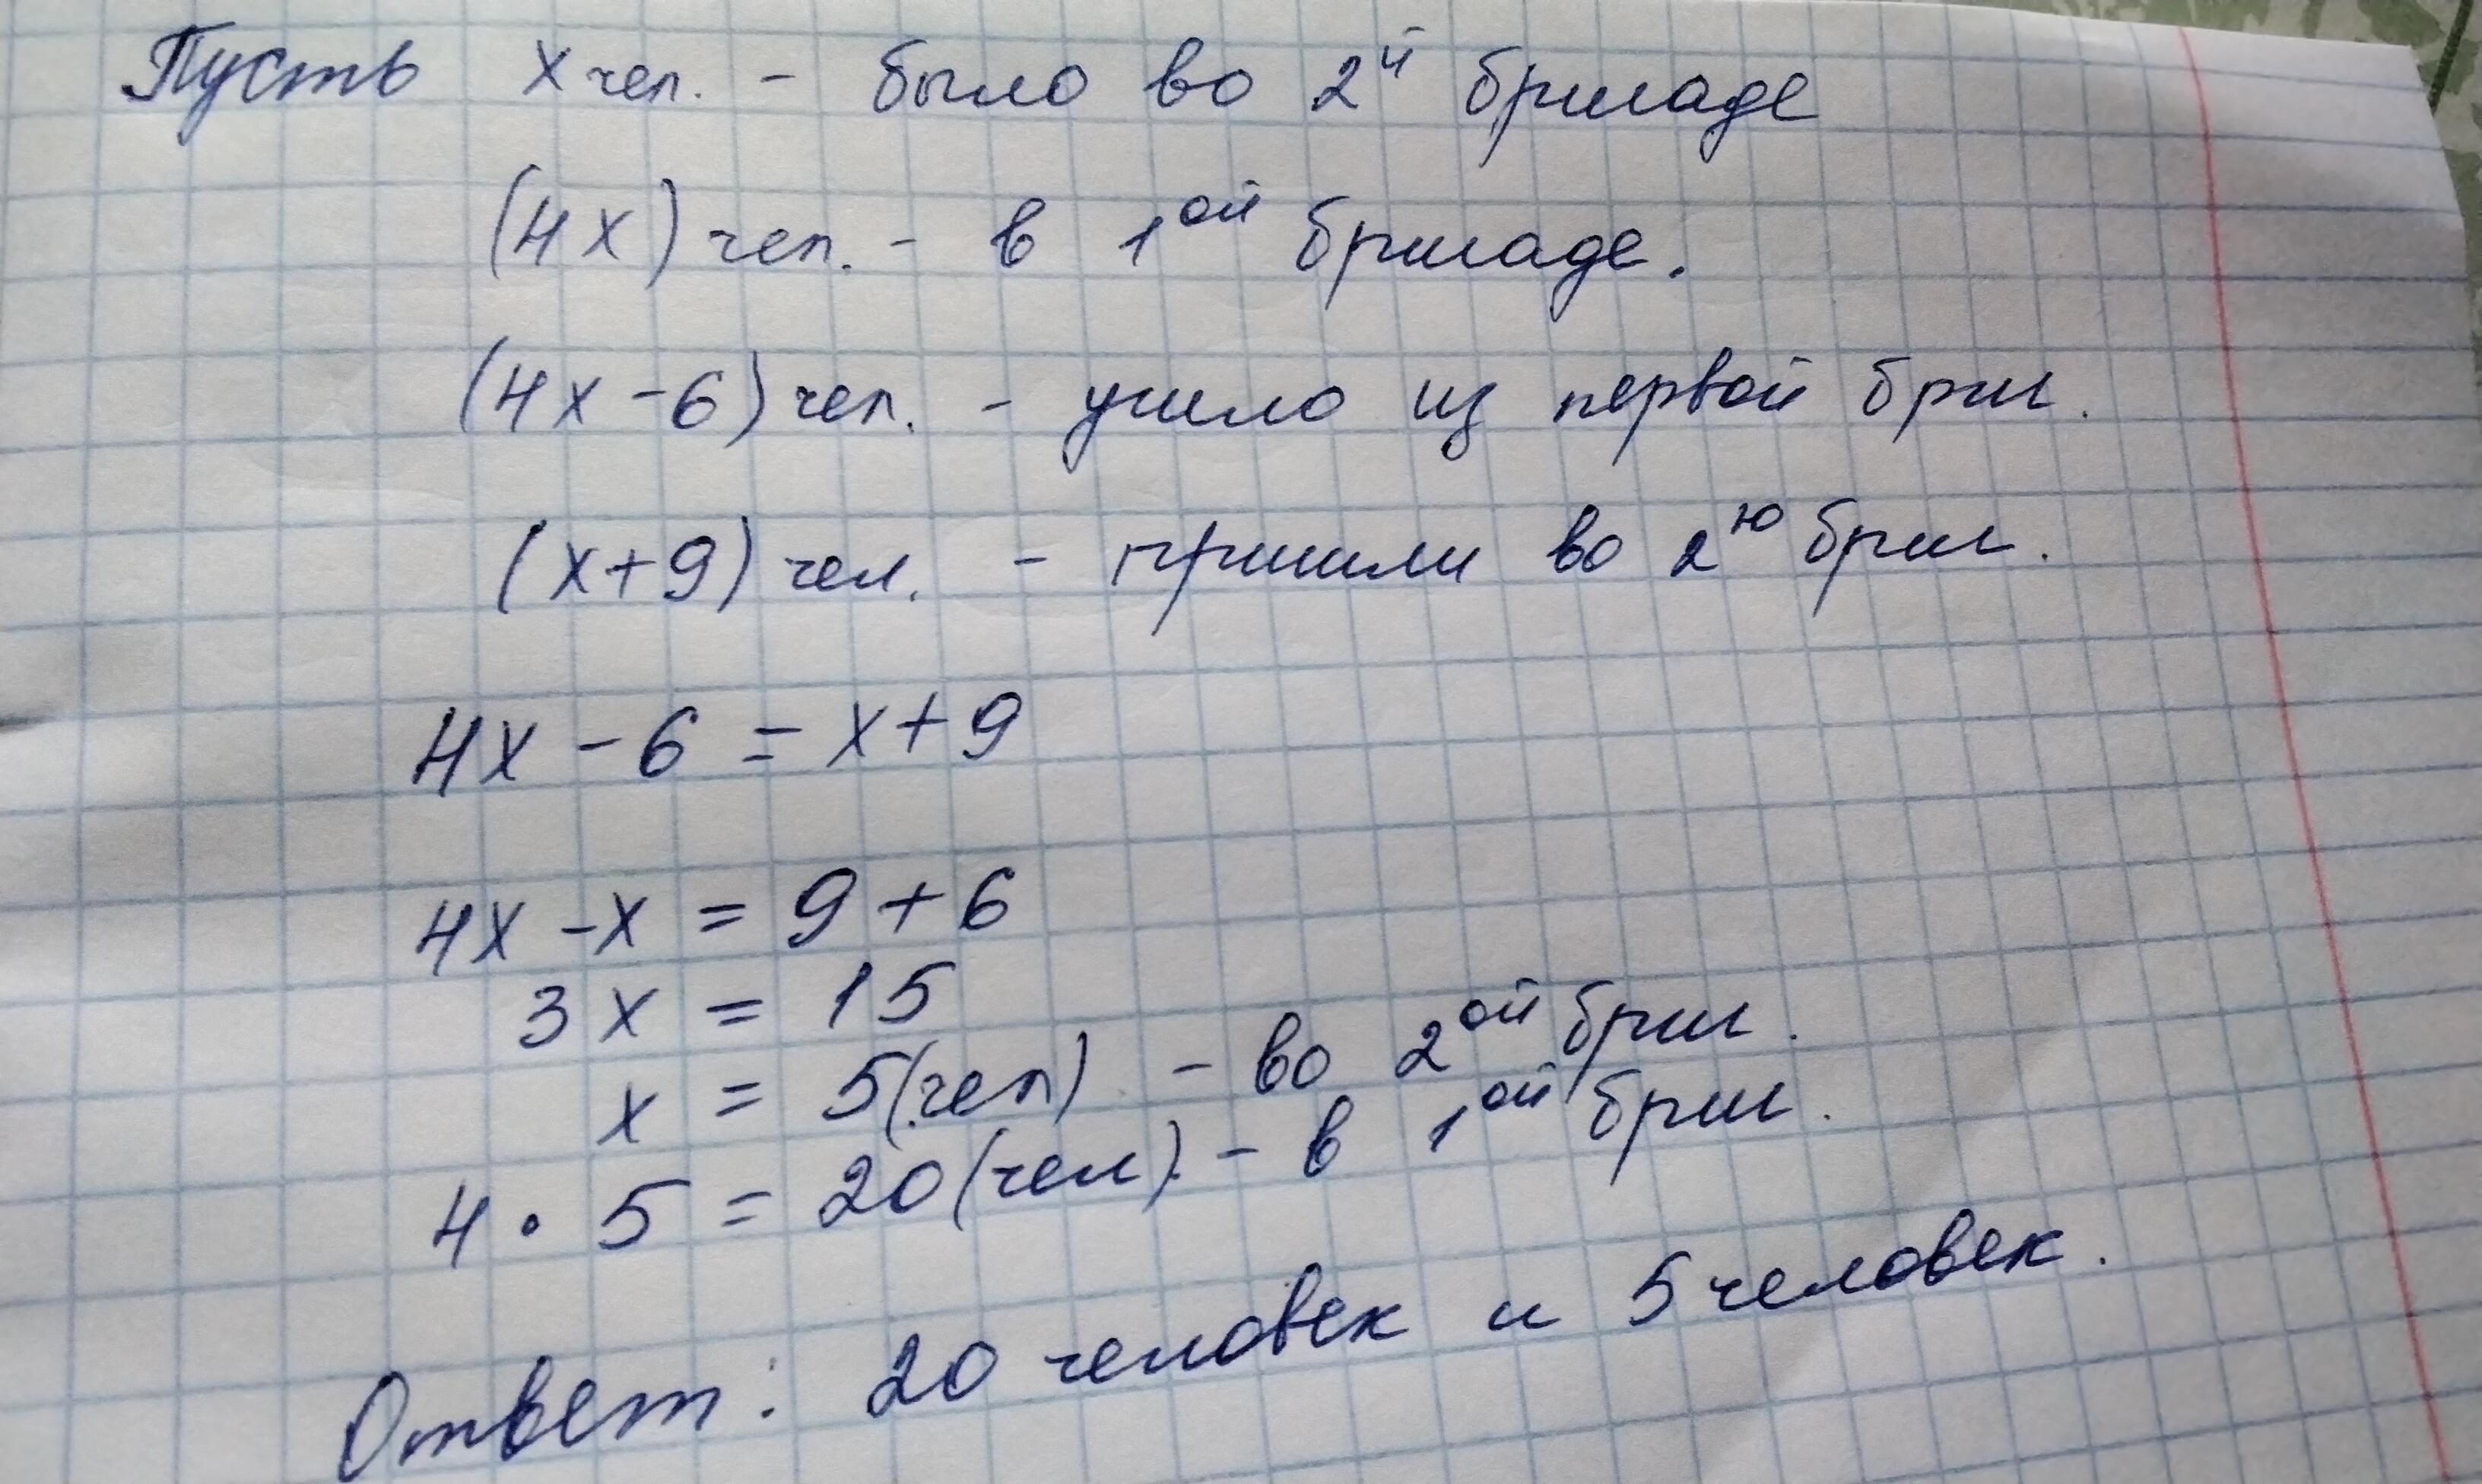 Пусть x чел. - было во 2й бригаде
(4x) чел. - в 1ой бригаде.
(4x-6) чел. - ушло из первой бриг.
(x+9) чел. - пришли во 2ю бриг.
4x - 6 = x+9
4x - x = 9 + 6
3x = 15
x = 5(чел) - во 2ой бриг.
4 · 5 = 20(чел). - в 1ой бриг.
Ответ: 20 человек и 5 человек.